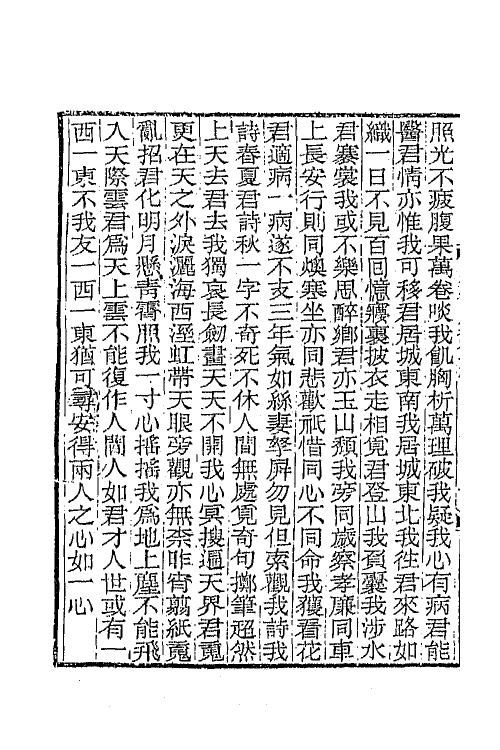 照光不疲腹果萬卷啖我飢胸析萬理破我疑我心有病君能
醫君情亦惟我可移君居城東南我居城東北我往君來路如
織一日不見百回憶癡裏披衣走相覓君登山我負囊我涉水
君褰裳我或不樂思醉鄉君亦玉山頹我旁同歲察孝廉同車
上長安行則同燠寒坐亦同悲歡祇惜同心不同命我獲看花
君適病一病遂不支三年氣如絲妻孥屏勿見但索觀我詩我
詩春夏君詩秋一字不奇死不休人間無處覓奇句擲筆超然
上天去君去我獨哀長劒畫天天不開我心冥搜遍天界君䰟
更在天之外淚灑海西涇虹帶天眼旁觀亦無柰昨宵翦紙䰟
亂招君化明月懸靑霄照我一寸心搖搖我爲地上塵不能飛
入天際雲君爲天上雲不能復作人閒人如君才人世或有一
西一東不我友一西一東猶可尋安得兩人之心如一心